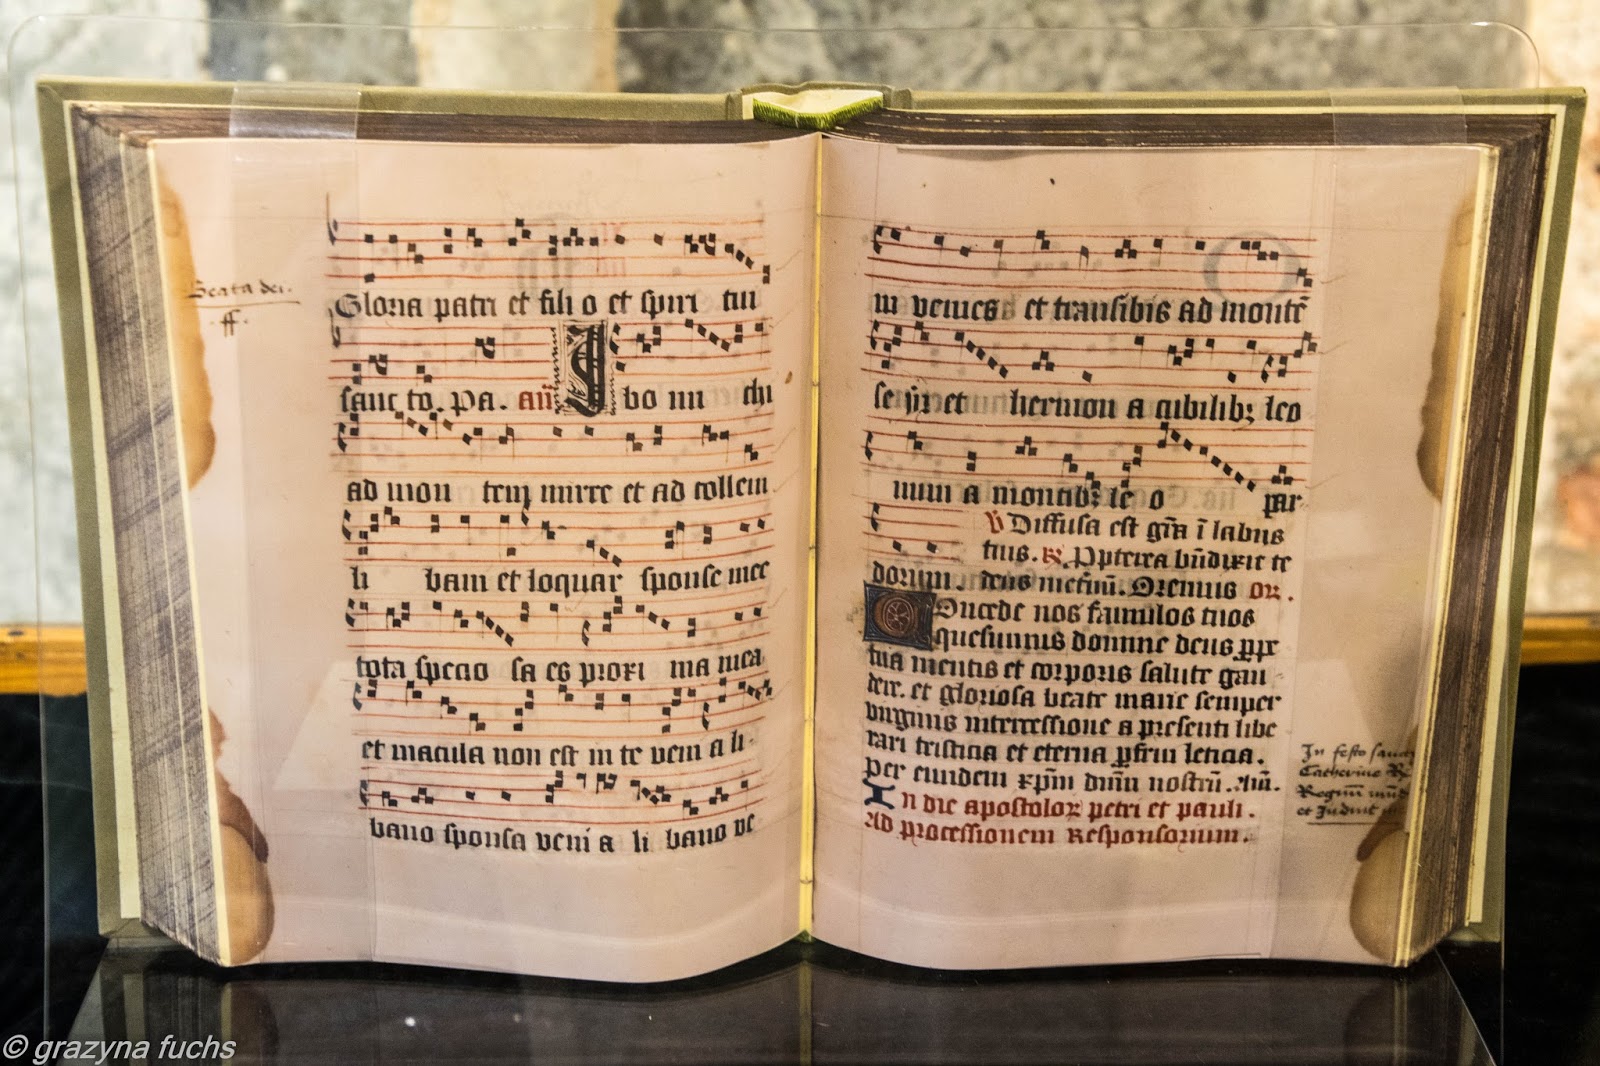 Beata dei.
ff.
Gloria patri et fili o et spiri tui
sancto. Pa. añ Ibo mi chi
ad mon tem mirre et ad collem
li bani et loquar sponse mee
tota specio sa es proxi ma mea
et macula non est in te veni a li-
bano sponsa veni a li bano ve
ni venies et transibis ad montē
seyr et hermon a cubilibꝫ leo
num a montibꝫ le o par
℣ Diffusa est grā ī labiis
tuis. ℟ Ppterea bn̄dixit te
dorum. deus
Oremus or.
Concede nos famulos tuos
quesumus domine deus ꝑpe
tua mentis et corporis salute gau
dere. et gloriosa beate marie semper
virginis intercessione a presenti libe
rari tristicia et eterna ꝑfrui leticia.
per eundem xp̄m dn̄m nostrū. Am̄.
In die apostoloꝝ petri et pauli.
Ad processionem Responsorium.
In festo sanc
Catherine ℟
Regnū mūd
et Indue
© grazyna fuchs